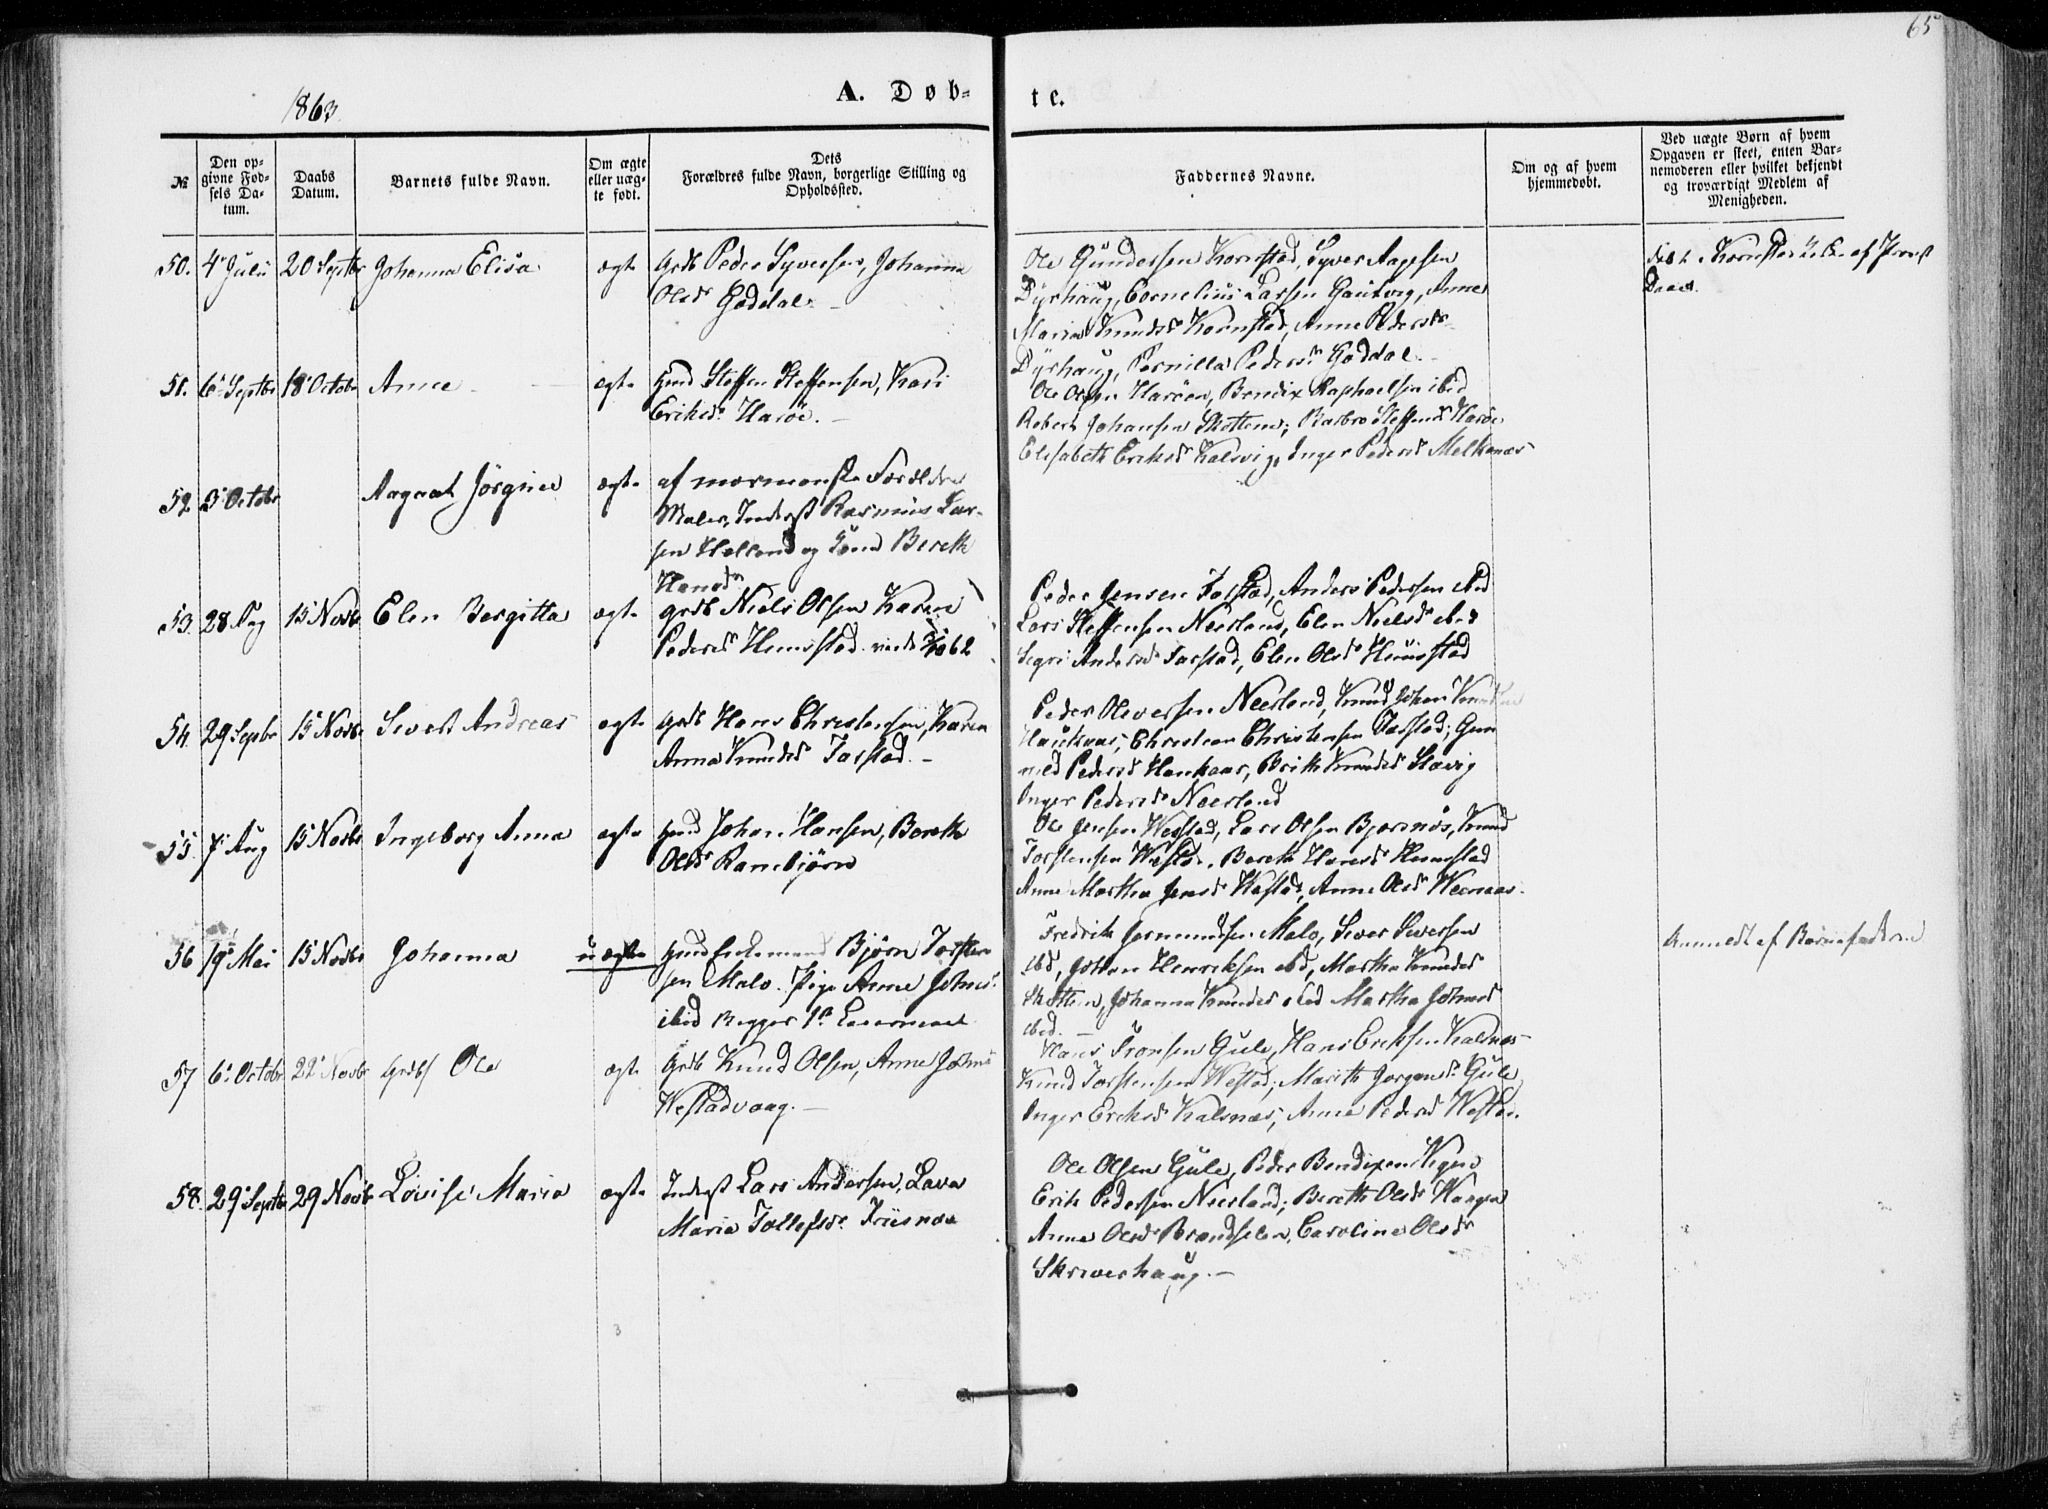 65
1863.
A. Døb-
te.
№
Den op-
givne Fød-
sels Da-
tum.
Daabs
Datum.
Barnets fulde Navn.
Om ægte
eller uæg-
te født.
Dets
Forældres fulde Navn, borgerlige Stilling og
Opholdssted.
Faddernes Navne.
Om og af hvem
hjemmedøbt.
Ved uægte Børn af hvem
Opgaven er skeet, enten Bar-
nemoderen eller hvilket bekjendt
og troværdigt Medlem af
Menigheden.
50. 4 Juli 20 Septbr Johanna Elisa ægte Grdb Peder Syversen, Johanna
Olsdr Goddal. -
Ole Gundersen Kornstad, Syver Aagesen
Dyrhaug, Cornelius Larsen Gautvig, Anne
Maria Knudsdr Kornstad, Anne Pedersdr
Dyrhaug, Pernilla Pedersdr Goddal. -
Døbt i Kornstad Kirke af Provst
Daae.
51. 6 Septbr 18 Octobr Anne ægte Hmd Steffen Steffensen, Kari
Eriksdr Harøe. -
Ole Olsen Harøen, Bendix Raphaelsen ibid
Robert Johansen Skottem, Barbro Steffensdr Harøe
Elisabeth Eriksdr Kalsvig, Inger Pedersdr Melkenæs
52. 3 Octobr Aagaat Jørgine ægte af mormonske Forældre
Maler, Inderst Rasmus Lar-
sen Holland og Kone Bereth
Hansdr
53. 28 Aug 15 Novbr Elen Bergitta ægte Grdb Niels Olsen Karen
Pedersdr Hemstad. 62
Peder Jensen Tarstad, Anders Pedersen ibid
Lars Steffensen Neerland, Elen Nielsdr ibid
Segri Andersdr Tarstad, Elen Olsdr Hemstad
54. 29 Septbr 15 Novbr Sivert Andreas ægte Grdb Hans Christensen, Karen
Anna Knudsdr Tarstad. -
Peder Oliversen Neerland, Knud Johan Knudsen
Haukaas, Christian Christensen Tarstad; Gun
nild Pedersdr Haukaas, Brith Knudsdr Slavig
Inger Pedersdr Neerland
55. 7 Aug 15 Novbr Ingeborg Anna ægte Hmd Johan Hansen, Bereth
Olsdr Ranebjørn
Ole Jensen Wefstad, Lars Olsen Bjørnøs, Knud
Torstensen Wefstad, Bereth Hansdr Hemstad
Anne Martha Jensdr Wefstad, Anne Olsdr Weenaas.
56 19 Mai 15 Novbr Johanna uægte Hmd Enkemand Bjørn Torsten
sen Malo. Pige Anne Johnsdr
ibid Begges 1ste Leiermaal
Fredrik Germundsen Malo, Siver Siversen
ibd, Johan Henriksen ibd, Martha Knudsdr
Skottem, Johanna Knudsdr ibid Martha Johnsdr
ibid. -
Anmeldt af Barnefaderen
57 6 Octobr 22 Novbr Ole ægte Grdb Knud Olsen, Anne Johnsdr
Wefstadvaag. -
Hans Ironsen Gule, Hans Eriksen Kalsnæs
Knud Torstensen Wefstad; Marith Jorgensdr Gule
Inger Eriksdr Kalsnæs, Anne Pedersdr Wefstad.
58. 29 Septbr 29 Novbr Lovise Maria ægte Inderst Lars Andersen, Lava
Maria Tollefsdr Triisnæs
Ole Olsen Gule, Peder Bendixen Vigen
Erik Pedersen Neerland; Bereth Olsdr Vangen
Anne Olsdr Brandselen, Caroline Olsdr
Skriverhaug. -